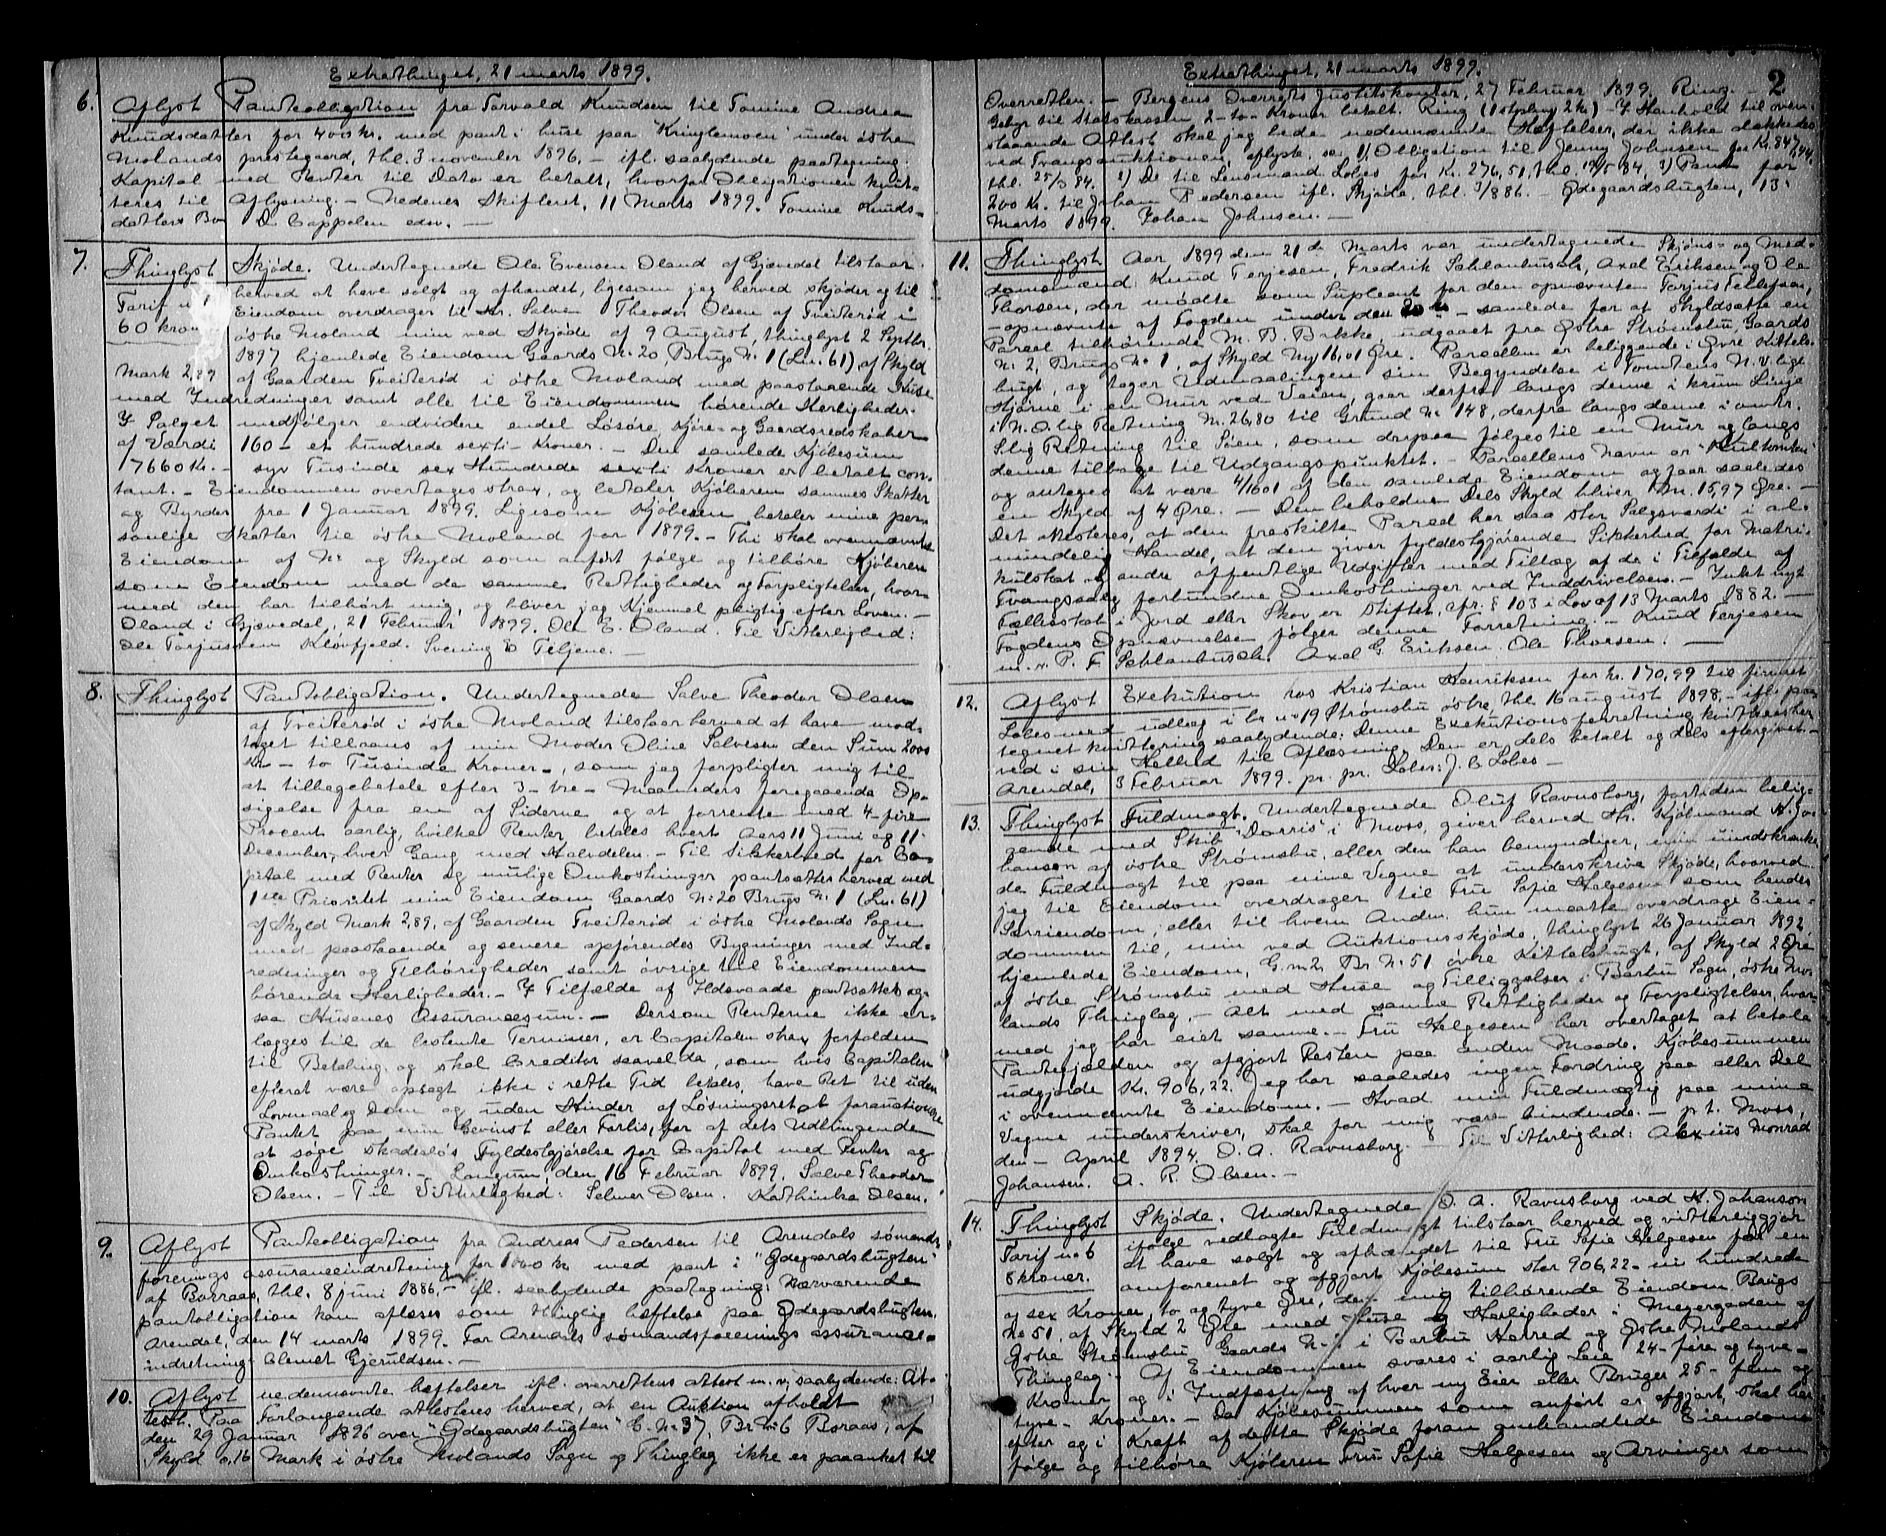 Extrathinget, 21 marts 1899.
6. Aflyst Panteobligation fra Torvald Knudsen til Tomine Andrea
Knudsdatter for 400 kr. med pant i huse paa "Kringlemoen" under östre
Molands prestegaard, thl. 3 november 1896. – ifl. saalydende paategning:
Kapital med Renter til Dato er betalt, hvorfor Obligationen kvit-
teres til Aflysning. – Nedenes Skifteret, 11 Marts 1899. Tomine Knuds-
datters Bo D. Cappelen edsv. –
7. Thinglyst Skjöde. Undertegnede Ole Evensen Oland af Gjævedal tilstaar
Tarif herved at have solgt og afhændet, ligesom jeg herved skjöder og til
60 kroner Eiendom overdrager til Hr. Salve Theodor Olsen af Tveiteröd i
östre Moland min ved Skjöde af 9 August, thinglyst 2 Septbr.
1897 hjemlede Eiendom Gaards No 20, Brugs No 1 (Ln. 61) af Skyld
Mark 2,89 af Gaarden Tveiteröd i östre Moland med paastaaende Huse
med Indredninger samt alle til Eiendommen hörende Herligheder.
I Salget medfölger endvidere endel Lösöre, Kjöre- og Gaardsredskaber
af Værdi 160 – et hundrede sexti – Kroner. – Den samlede Kjöbesum
17660 Kr. – syv Tusinde sex Hundrede sexti Kroner er betalt con-
tant. – Eiendommen overtages strax, og betaler Kjöberen sammes Skatter
og Byrder fra 1 Januar 1899. Ligesom Kjöberen betaler mine per-
sonlige Skatter til östre Moland for 1899. – Thi skal ovennævnte
Eiendom af No og Skyld som anfört fölge og tilhöre Kjöberen
som Eiendom med de samme Rettigheder og Forpligtelser, hvor-
med den har tilhört mig, og bliver jeg Hjemmel pligtig efter Loven. –
Oland i Gjævedal, 21 Februar 1899. Ole E. Oland. Til Vitterlighed:
Ole Torjussen Klövfjeld. Svenung E Teljene. –
8. Thinglyst Pantobligation. Undertegnede Salve Theodor Olsen
af Tveiteröd i östre Moland tilstaar herved at have mod-
taget tillaans af min Moder Oline Salvesen den Sum 2000
Kr – to Tusinde Kroner –, som jeg forpligter mig til
at tilbagebetale efter 3 – tre – Maaneders foregaaende Op-
sigelse fra en af Siderne og at forrente med 4 – fire
Procent aarlig, hvilke Renter betales hvert Aars 11 Juni og 11
December, hver Gang med Halvdelen. – Til Sikkerhed for Ca-
pital med Renter og mulige Omkostninger pantsætter herved med
1ste Prioritet min Eiendom Gaards No 20 Brugs No 1 (Ln. 61)
af Skyld Mark 2,89, af Gaarden Tveiteröd i östre Molands Sogn
med paastaaende og senere opförendes Bygninger med Ind-
redninger og Tilhörigheder samt övrige til Eiendommen
hörende Herligheder. – I Tilfælde af Ildsvaade pantsættes og-
saa Husenes Assurancesum. – Dersom Renterne ikke er-
lægges til de bestemte Terminer, er Capitalen strax forfalden
til Betaling, og skal Creditor saavel da, som hvis Capitalen
efterat være opsagt ikke i rette Tid betales, have Ret til uden
Lovmaal og Dom og uden Hinder af Lösningsret at foranstalte
Pantet paa min Gevinst eller Forlis, for af dets Udbringende
at söge skadeslös Fyldestgjörelse for Capital med Renter og
Omkostninger. – Langum, den 16 Februar 1899. Salve Theodor
Olsen. – Til Vitterlighed: Selmer Olsen. Kathinka Olsen.
9. Aflyst Panteobligation fra Andreas Pedersen til Arendals sömands-
forenings assuranceindretning for 1000 kr. med pant i "Ödegaardsbugten"
af Borraas, thl. 8 juni 1886. – ifl. saalydende paategning: Nærværende
pantobligation kan aflæses som thinglig heftelse paa Ödegaardsbugten.
Arendal, den 14 marts 1899. For Arendals sömandsforenings assurance-
indretning. Clemet Gjeruldsen. –
10. Aflyst nedennævnte heftelser ifl. overrettens attest m. v, saalydende: At-
test. Paa Forlangende attesteres herved, at en Auktion afholdt
den 29 Januar 1896 over "Ödegaardsbugten" G. No 37, Br No 6 Boraas, af
Skyld 0,16 Mark i östre Molands Sogn og Thinglag ikke er paaanket til
Extrathinget, 21 marts 1899. 2
Overretten. – Bergens Overrets Justitskontor, 27 Februar 1899. Ring. –
Gebyr til Statskassen 2 – to – Kroner betalt. Ring (1 stplmg 2 kr) – I Henhold til oven-
staaende Attest skal jeg bede nedennævnte Heftelser, der ikke dækkedes
ved Tvangsauktionen, aflyste. se: 1) Obligation til Jenny Johnsen for Kr. 847,44,
thl. 25/3 84. 2) Do til Lensmand Lobes for Kr. 276,51, thl. 19/5 84. 3) Pant for
200 Kr. til Johan Pedersen ifl. Skjöde, thl. 3/886. – Ödegaardsbugten, 13
Marts 1899. Johan Johnsen. –
11. Thinglyst Aar 1899 den 21de Marts var undertegnede Skjöns- og Med-
domsmænd: Knud Terjesen, Fredrik Schlanbusch, Axel Eriksen og Ole
Thorsen, der mödte som Supleant for den opnævnte Torjus Tellefsen,
– opnævnte af Fogden under den 20 ds – samlede for at skyldsætte en
Parcel tilhörende M. B. Bakke, udgaaet fra Östre Strömsbu, Gaards
No 2, Brugs No 1, af Skyld My 16,01 Öre. Parcellen er beliggende i Övre Kittels-
bugt, og tager Udmaalingen sin Begyndelse i Tomtens N. V. lige
Hjörne i en Mur ved Veien, gaar derfra langs denne i krum Linje
i N. Ö lig Retning M. 26,80 til Grund No 148, derfra langs denne i omtr.
S lig Retning til Söen, som derpaa fölges til en Mur og langs
denne tilbage til Udgangspunktet. – Parcellens Navn er "Kultomten"
og antages at være 4/1601 af den samlede Eiendom og faar saaledes
en Skyld af 4 Öre. – Den beholdne Dels Skyld bliver 1 M. 15,97 Öre. –
Det attesteres, at den fraskilte Parcel har saa stor Salgsværdi i al-
mindelig Handel, at den giver fyldestgjörende Sikkerhed for Matri-
kulskat og andre offentlige Udgifter med Tillæg af de i Tilfælde af
Tvangssalg forbundne Omkostninger ved Inddrivelsen. – Intet nyt
Fællesskab i Jord eller Skov er stiftet, cfr. § 103 i Lov af 13 Marts 1882. –
Fogdens Opnævnelse fölger denne Forretning. – Knud Terjesen
m. v. P. F. Schlanbusch. Axel G. Eriksen. Ole Thorsen. –
12. Aflyst Exekution hos Kristian Henriksen for kr. 170,99 til firmaet
Lobes med udlæg i br. no 19 Strömsbu östre, thl 16 august 1898. – ifl. paa-
tegnet kvittering saalydende: Denne Exekutionsforretning kvitteres her-
ved i sin Helhed til Aflæsning. Den er dels betalt og dels eftergivet. –
Arendal, 3 Februar 1899. pr. pr. Lobes: J. C Lobes –
13. Thinglyst Fuldmagt. Undertegnede Oluf Ravnsborg, fortiden belig-
gende med Skib "Dorris" i Moss, giver herved Hr. Kjöbmand K. Jo-
hanson af östre Strömsbu, eller den han bemyndiger, min uindskrænke-
de Fuldmagt til paa mine Vegne at underskrive Skjöde, hvorved
jeg til Eiendom overdrager til Fru Sofie Helgesen som hendes
Særeiendom, eller til hvem Anden hun maatte overdrage Eien-
dommen til, min ved Auktionsskjöde, thinglyst 26 Januar 1892
hjemlede Eiendom, G. no 2 Br. No 51 övre Kittelsbugt, af Skyld 2 Öre
af östre Strömsbu med Huse og Tilliggelser i Barbu Sogn, östre Mo-
lands Thinglag, – Alt med samme Rettigheder og Forpligtelser, hvor-
med jeg har eiet samme. – Fru Helgesen har overtaget at betale
Pantegjælden og afgjort Resten paa anden Maade. Kjöbesummen
udgjorde Kr. 906,22. Jeg har saaledes ingen Fordring paa eller Del
i ovennævnte Eiendom. – Hvad min Fuldmægtig paa mine
Vegne underskriver, skal for mig være bindende. – p. t. Moss,
den – April 1894. O. A. Ravnsborg. – Til Vitterlighed: Alexius Monrad
Johansen. A. R. Olsen. –
14. Thinglyst Skjöde. Undertegnede O. A. Ravnsborg ved K. Johanson
Tarif no 6 ifölge vedlagte Fuldmagt tilstaar herved og vitterliggjör
8 kroner. at have solgt og afhændet til Fru Sofie Helgesen for en
omforenet og afgjort Kjöbesum stor 906,22 – ni hundrede
og sex Kroner, to og tyve Öre, den mig tilhörende Eiendom Brugs
No 51, af Skyld 2 Öre med Huse og Herligheder i Meyergaden af
Östre Strömsbu Gaards No 2 i Barbu Herred og Östre Molands
Thinglag. – Af Eiendommen svares i aarlig Leie 24 – fire og tyve –
Kroner og i Indfæstning af hver ny Eier eller Bruger 25 – fem og
tyve – Kroner. – Da Kjöbesummen som anfört er afgjort, skal her-
efter og i Kraft af dette Skjöde foran omhandlede Eiendom
fölge og tilhöre Kjöberen Fru Sofie Helgesen og Arvinger som